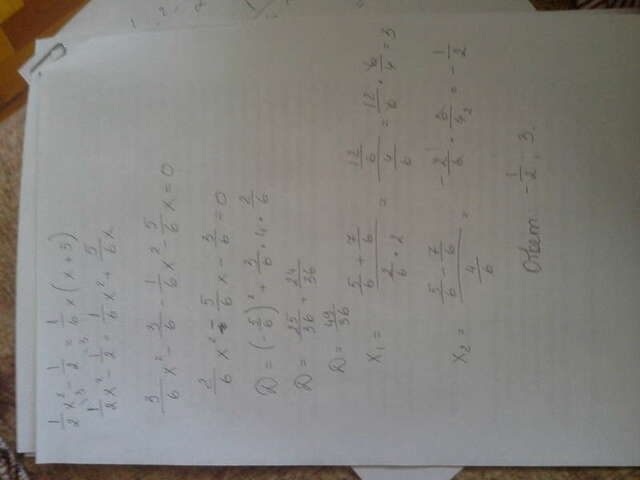 1/2 x² - 1/2 = 1/6 x (x + 5)
1/2 x² - 1/2 = 1/6 x² + 5/6 x
3/6 x² - 3/6 - 1/6 x² - 5/6 x = 0
2/6 x² - 5/6 x - 3/6 = 0
D = (-5/6)² + 3/6 · 4 · 2/6
D = 25/36 + 24/36
D = 49/36
x₁ = (5/6 + 7/6)/(2/6 · 2) = (12/6)/(4/6) = 12/6 · 6/4 = 3
x₂ = (5/6 - 7/6)/(4/6) = -2/6 · 6/4 = -1/2
Ответ: -1/2; 3.